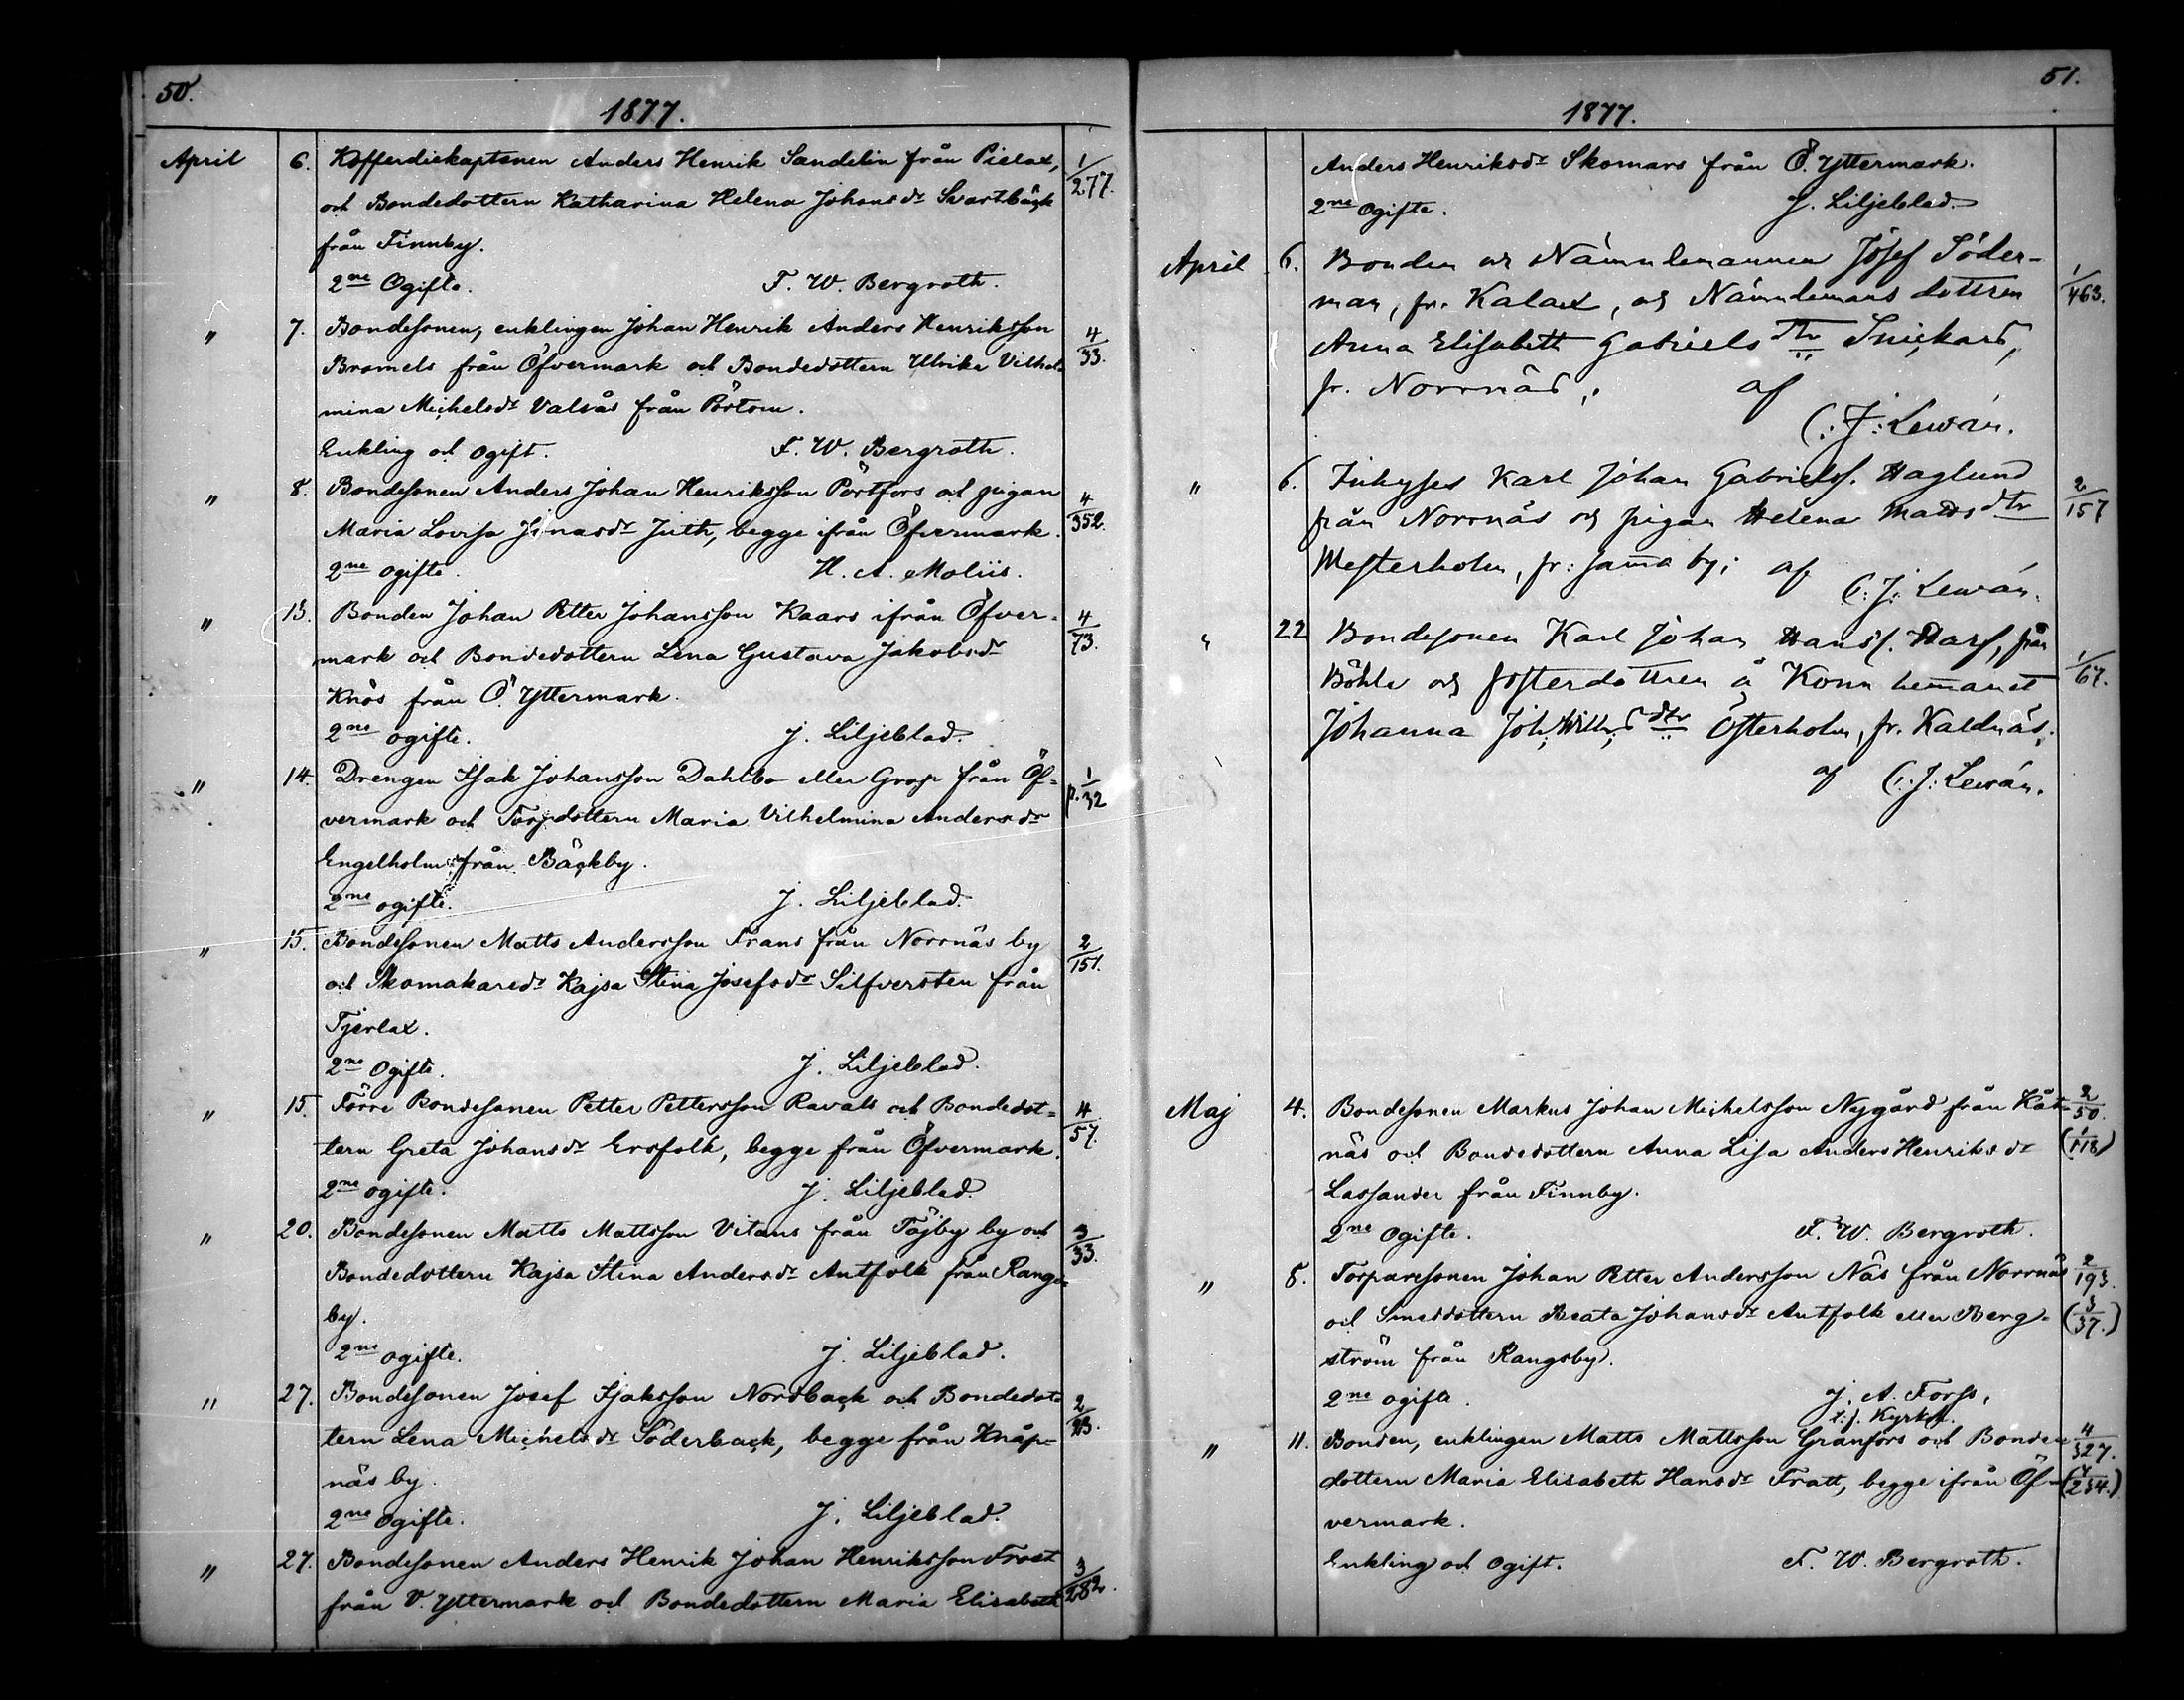 50.
1877.
April 6. Kofferdiekaptenen Anders Henrik Sandelin från Pielax, 1/277.
och Bondedottern Katharina Helena Johansdr Svartbäck
från Finnby.
2ne Ogifte. F. W. Bergroth.
" 7. Bondesonen, enklingen Johan Henrik Anders Henriksson 4/33.
Bromels från Öfvermark och Bondedottern Ulrika Vilhel-
mina Michelsdr Valsås från Pörtom.
Enkling och ogift. F. W. Bergroth.
" 8. Bondesonen Anders Johan Henriksson Pörtfors och pigan 4/352.
Maria Lovisa Jonasdr Juth, begge ifrån Öfvermark.
2ne ogifte. H. A. Moliis.
" 13. Bonden Johan Petter Johansson Kaars ifrån Öfver- 4/73.
mark och Bondedottern Lena Gustava Jakobsdr
Knös från Ö. Yttermark.
2ne ogifte. J. Liljeblad.
" 14. Drengen Isak Johansson Dahlbo eller Grop från Öf- p. 1/32
vermark och Torpdottern Maria Vilhelmina Andersdr
Engelholm från Bäckby.
2ne ogifte. J. Liljeblad.
" 15. Bondesonen Matts Andersson Frans från Norrnäs by 2/151.
och Skomakaredr Kajsa Stina Josefsdr Silfversten från
Tjerlax.
2ne Ogifte. J. Liljeblad.
" 15. Förre Bondesonen Petter Pettersson Ravals och Bondedot- 4/57.
tern Greta Johansdr Ersfolk, begge från Öfvermark.
2ne ogifte. J. Liljeblad.
" 20. Bondesonen Matts Mattsson Vitans från Töjby by och 3/33.
Bondedottern Kajsa Stina Andersdr Antfolk från Rangs-
by.
2ne ogifte. J. Liljeblad.
" 27. Bondesonen Josef Isaksson Nordback och Bondedot- 2/23.
tern Lena Michelsdr Söderback, begge från Knåp-
näs by.
2ne Ogifte. J. Liljeblad.
" 27. Bondesonen Anders Henrik Johan Henriksson Frost 3/282.
från V. Yttermark och Bondedottern Maria Elisabeth
51.
1877.
Anders Henriksdr Skomars från Ö. Yttermark.
2ne Ogifte. J. Liljeblad.
April 6. Bonden och Nämndemannen Josef Söder- 1/463.
man, fr. Kalax, och Nämndemans dottren
Anna Elisabeth Gabriels dtr Snickars,
fr. Norrnäs, af
C. J. Lewán.
" 6. Inhyses Karl Johan Gabrielss. Haglund 2/157
från Norrnäs och pigan Helena Matts dtr
Westerholm, fr. samma by; af C. J. Lewán.
" 22 Bondesonen Karl Johan Hanss. Harf, från 1/67.
Böhle och fosterdottren å Konn hemanet
Johanna Joh. Wilh.s dtr Österholm, fr. Kaldnäs;
af C. J. Lewán.
Maj 4. Bondesonen Markus Johan Michelsson Nygård från Kåt- 2/50.
näs och Bondedottern Anna Lisa Anders Henriksdr (1/118)
Lassander från Finnby.
2ne Ogifte. F. W. Bergroth.
" 8. Torparesonen Johan Petter Andersson Näs från Norrnäs 2/193.
och Smedottern Beata Johansdr Antfolk eller Berg- (3/37.)
ström från Rangsby.
2ne ogifte. J. A. Forss,
t. f. Kyrkh.
" 11. Bonden, enklingen Matts Mattsson Granfors och Bonde- 4/327.
dottern Maria Elisabeth Hansdr Fratt, begge ifrån Öf- (4/234.)
vermark.
Enkling och Ogift. F. W. Bergroth.